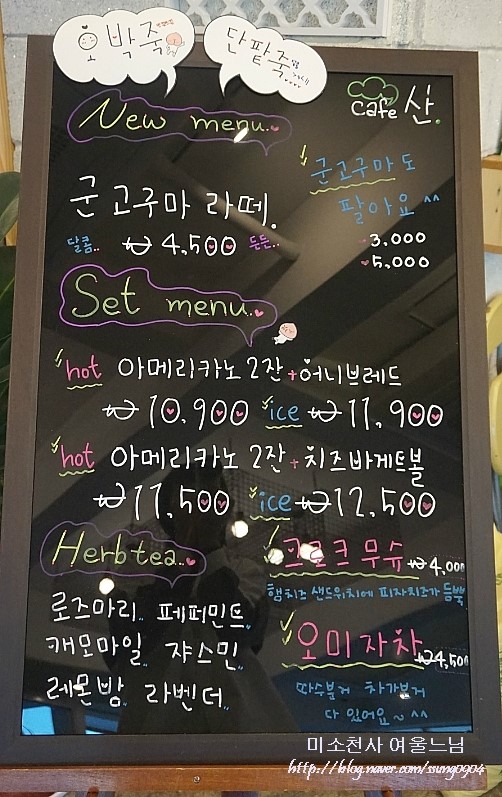 호박죽
단팥죽
Cafe 산.
New menu..
군고구마 라떼.
달콤.. ₩4,500 든든..
군고구마도
팔아요 ^^
3,000
5,000
Set menu..
hot 아메리카노 2잔 + 허니브레드
₩10,900 ice ₩11,900
hot 아메리카노 2잔 + 치즈바게트볼
₩11,500 ice ₩12,500
Herbtea..
로즈마리.. 페퍼민트..
캐모마일.. 쟈스민..
레몬밤.. 라벤더..
크로크 무슈 ₩4,000
햄치즈 샌드위치에 피자치즈가 듬뿍
오미자차 ₩4,500
따수분거 차가분거
다 있어요~ ^^
미소천사 여울느님
http://blog.naver.com/ssung0904